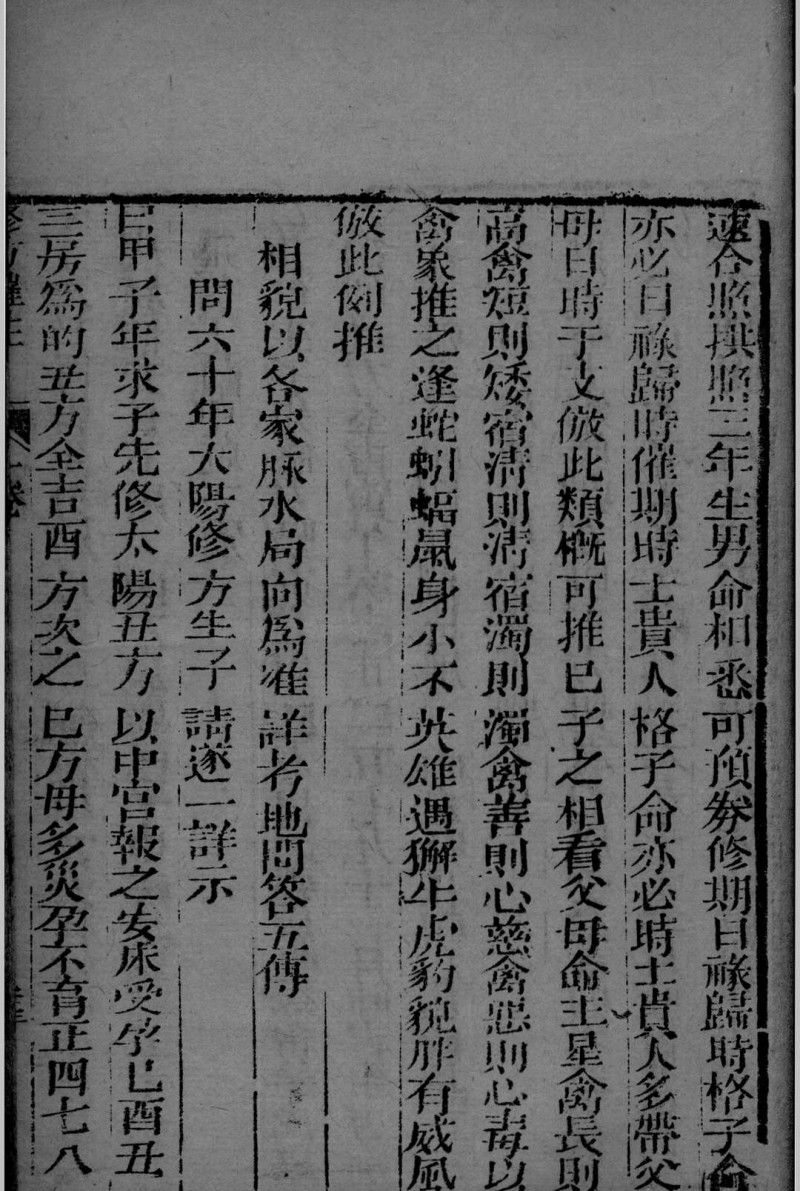 遠合照拱照三年生男命相悉可預券修期日祿歸時格子命
亦必日祿歸時催期時士貴人格子命亦必時士貴人多帶父
母日時于支倣此類概可推已子之相看父母命主星禽長則
高禽短則矮宿淸則淸宿濁則濁禽善則心慈禽惡則心毒以
禽象推之逢蛇蚓蝠鼠身小不英雄遇獬牛虎豹貌胖有威風
倣此例推
相貌以各家脉水局向爲准詳考地問答五傳
問六十年太陽修方生子請遂一詳示
曰甲子年求子先修太陽丑方以中宮報之安床受孕巳酉丑
三房爲的丑方全吉酉方次之巳方母多災孕不育正四七八